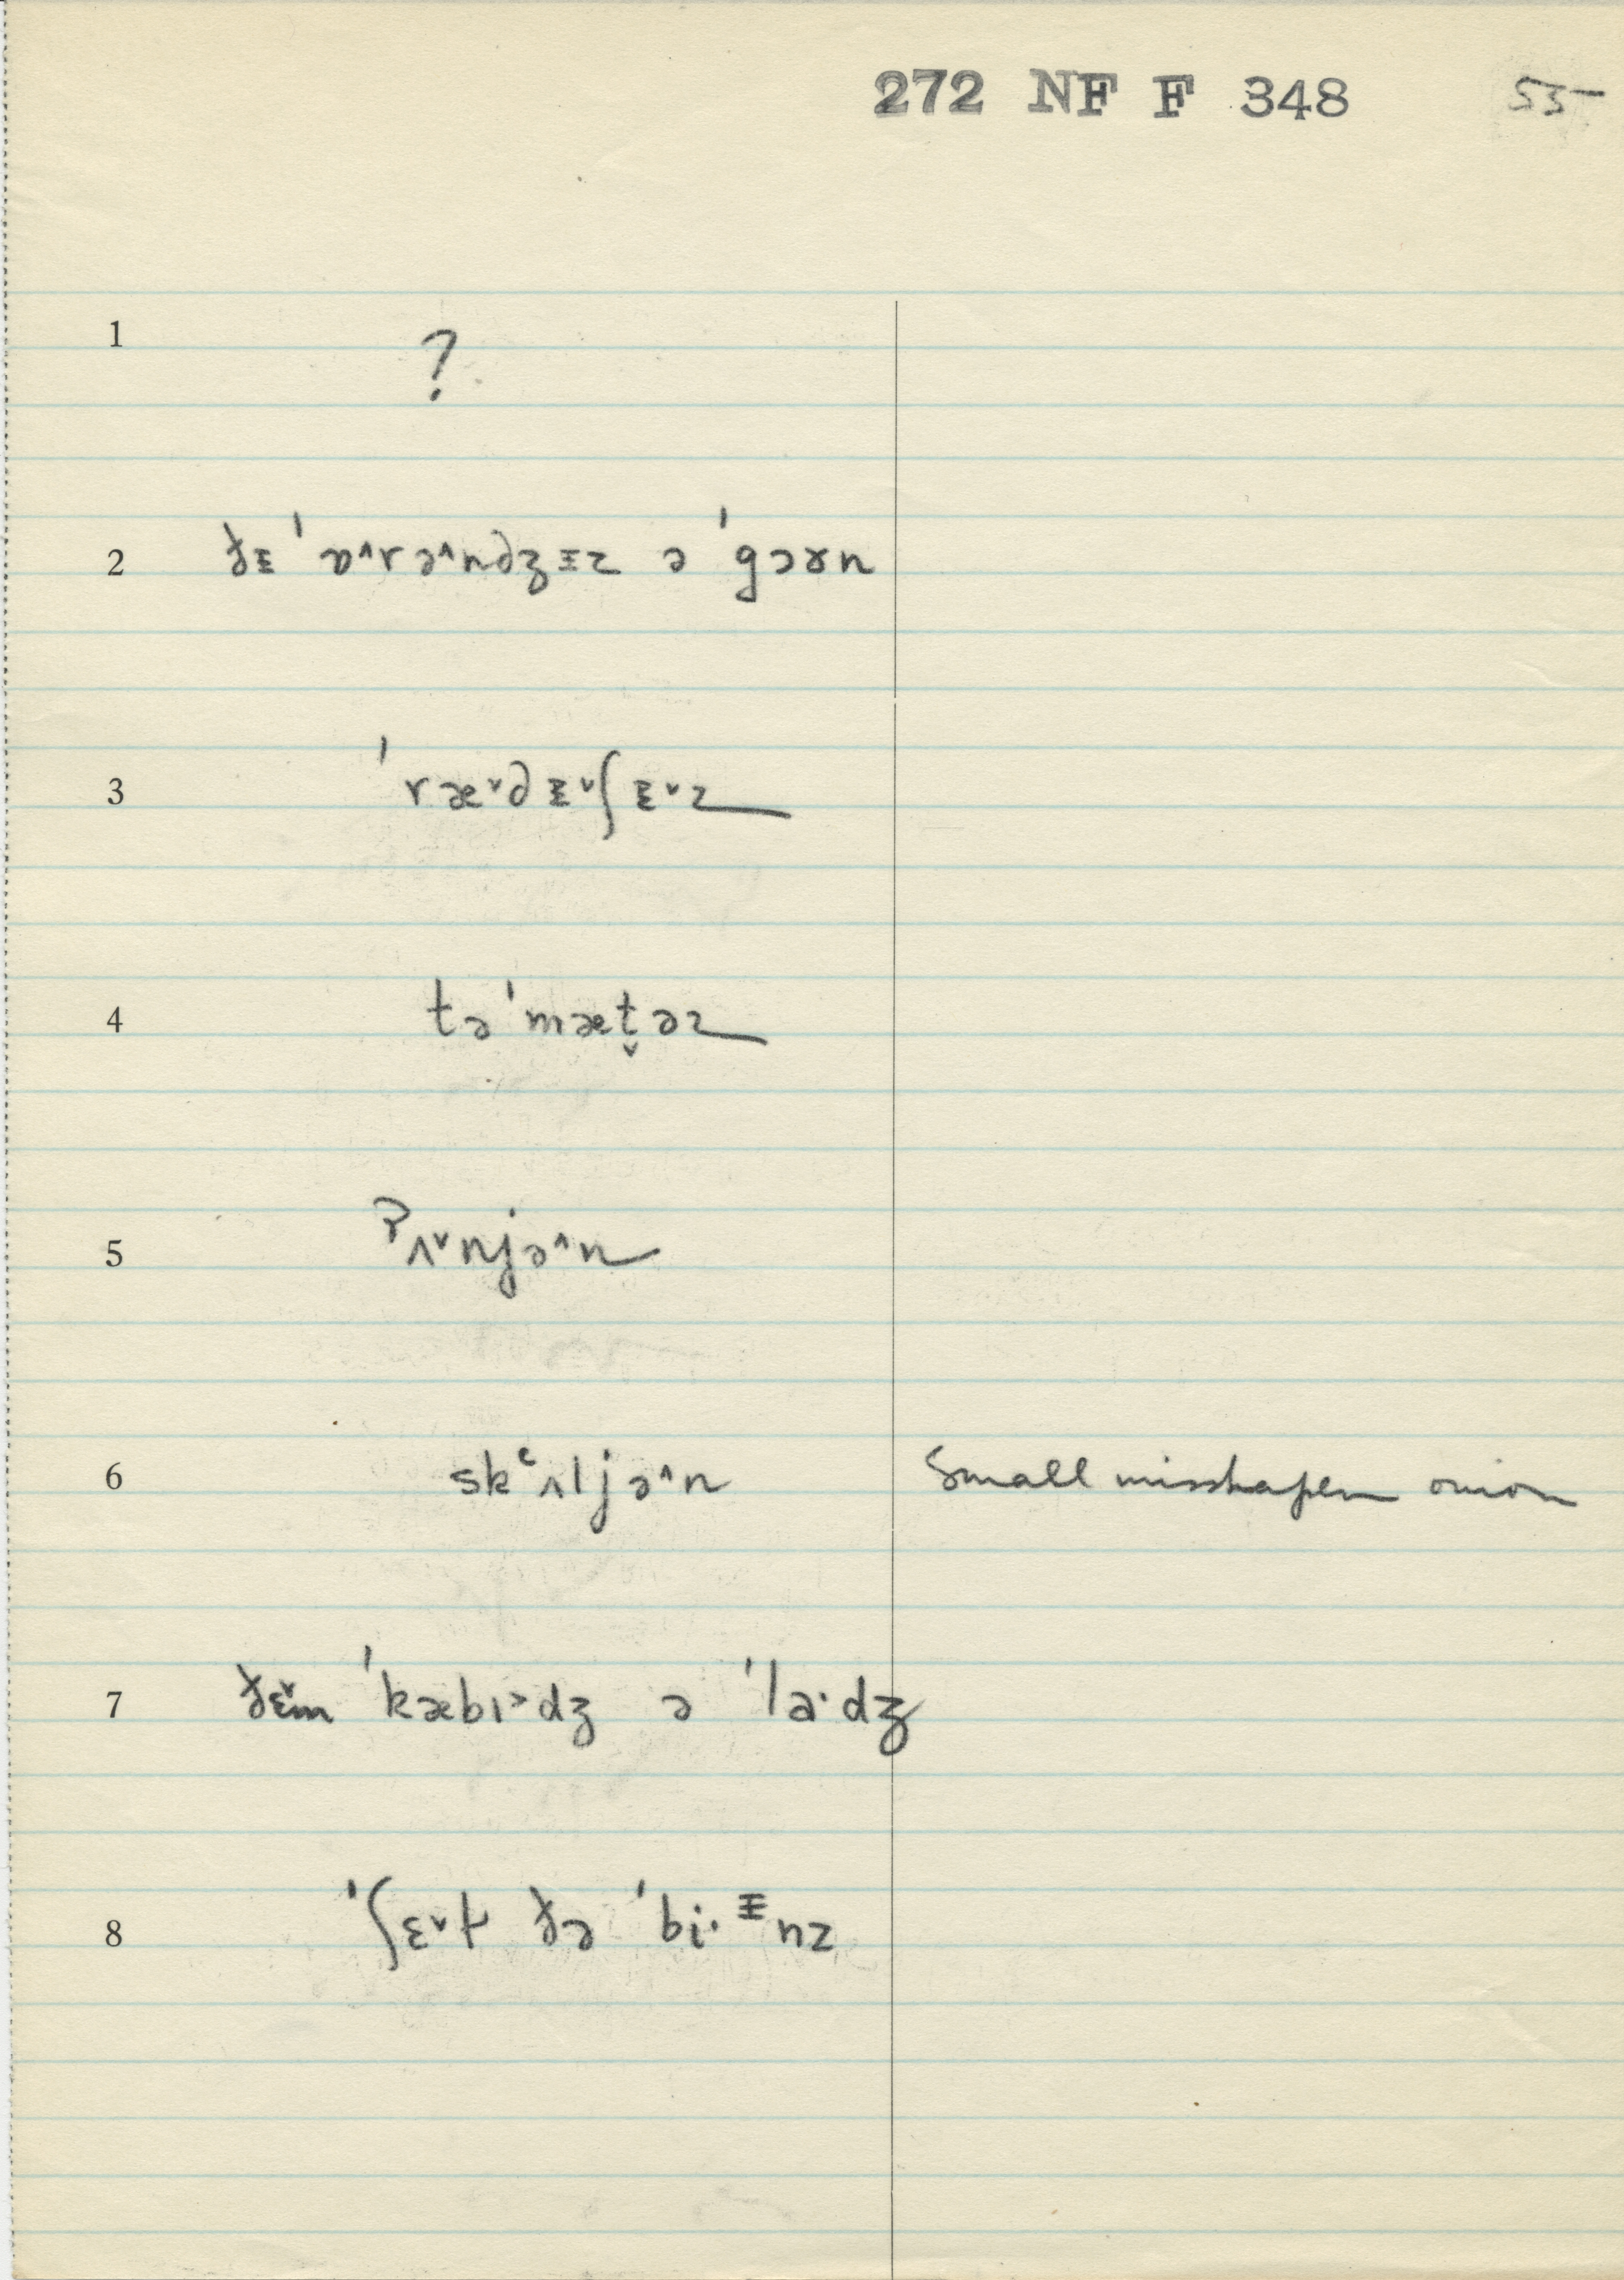 272 NF F 348 55
1 ?
2 ðᵻ ˈɒ^rə^ndʒᵻz ə ˈgɔɤn
3 ˈræˇdᵻˇʃᵻˇz
4 təˈmæt̬əz
5 ʔʌˇnjə^n
6 skʿʌljə^n Small misshapen onion
7 ðɛˇm ˈkæbɪ>dʒ ə ˈla·dʒ
8 ˈʃɛˇɫ ðə ˈbi·ᵻnz